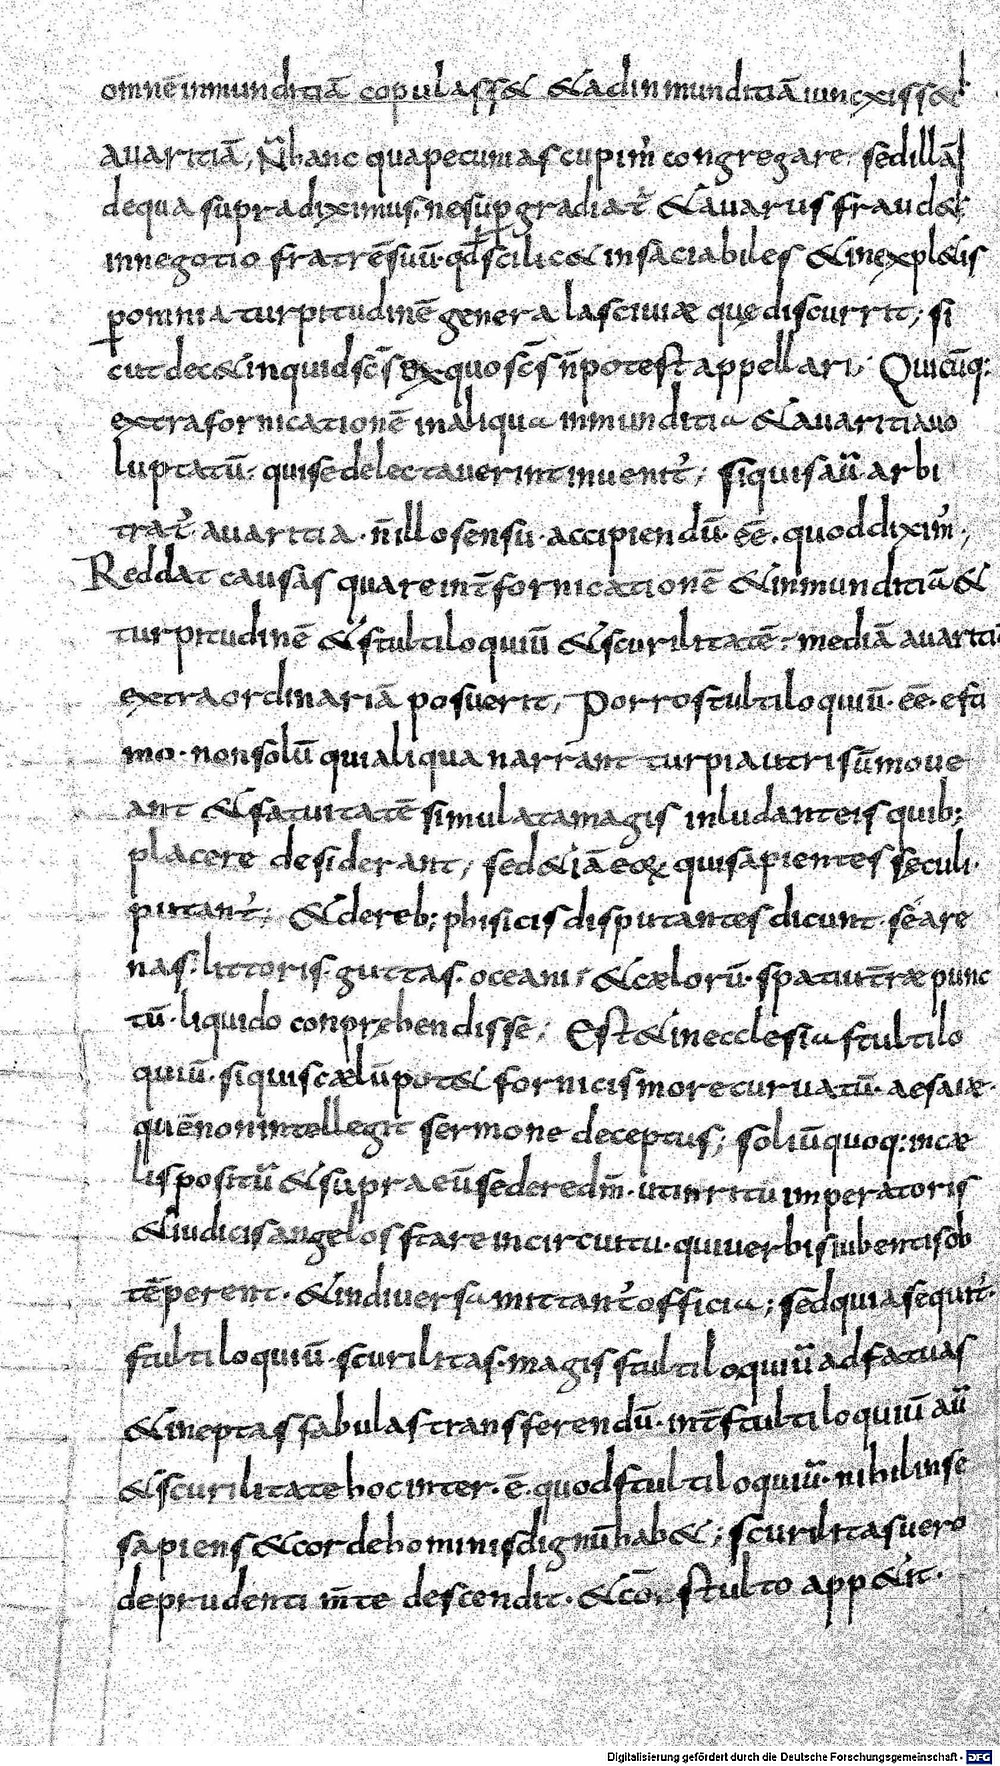 omnē inmunditiā copulass& & ad inmunditiā iunexiss&
auaritiā, N̄ hanc qua pecunias cupim̄ congregare. sed illā
de qua supra diximus. ne sup̱gradiat̄ & auarus fraud&
in negotio fratrē suū. qd̄ scilic& insaciabiles & inexpl&is
p̱ omnia turpitudinē genera lasciuiæ que discurrit; si
cut dec& inquid sc̄s ex quo sc̄s n̄ potest appellari; Quicūq:
extra fornicationē in aliqua inmunditia & auaritia uo
luptatū. qui se delectauerint inuenit̄; si quis aū arbi
trat̄ auaritia. n̄ illo sensu. accipiendū. eē. quod dixim̄;
Reddat causas quare int̄ fornicationē & inmunditiā &
turpitudinē & stultiloquiū & scurilitatē. mediā auaritiā
extraordinariā posuerit, Porro stultiloquiū. eē. esti
mo. non solū qui aliqua narrant turpia ut risū moue
ant & fatuitatē simulata magis inludant eis quib;
placere desiderant, sed & iā eoꝝ. qui sapientes seculi.
putant̄; & de reb; phisicis disputantes dicunt se are
nas. littoris. guttas. oceani, & cælorū. spatiū t̄ræ punc
tū. liquido conprehendisse; Est & in ecclesia stultilo
quiū. si quis cælū pot& fornicis more curuatū. aesaiæ.
quē non intellegit sermone deceptus; soliū quoq: in cæ
lis positū & supra eū sedere dm̄. ut in ritu imperatoris
& iudicis angelos stare in circuitu. qui uerbis iubentis ob
tēperent. & in diuersa mittant̄ officia; sed quia sequit̄.
stultiloquiū. scurilitas. magis stultiloquiū ad fatuas
& ineptas fabulas transferendū. int̄ stultiloquiū aū
& scurilitate hoc inter. ē. quod stultiloquiū. nihil in se
sapiens & corde hominis dignū hab&; scurilitas uero
de prudenti m̄te descendit. & cō. stulto app&it.
Digitalisierung gefördert durch die Deutsche Forschungsgemeinschaft - DFG